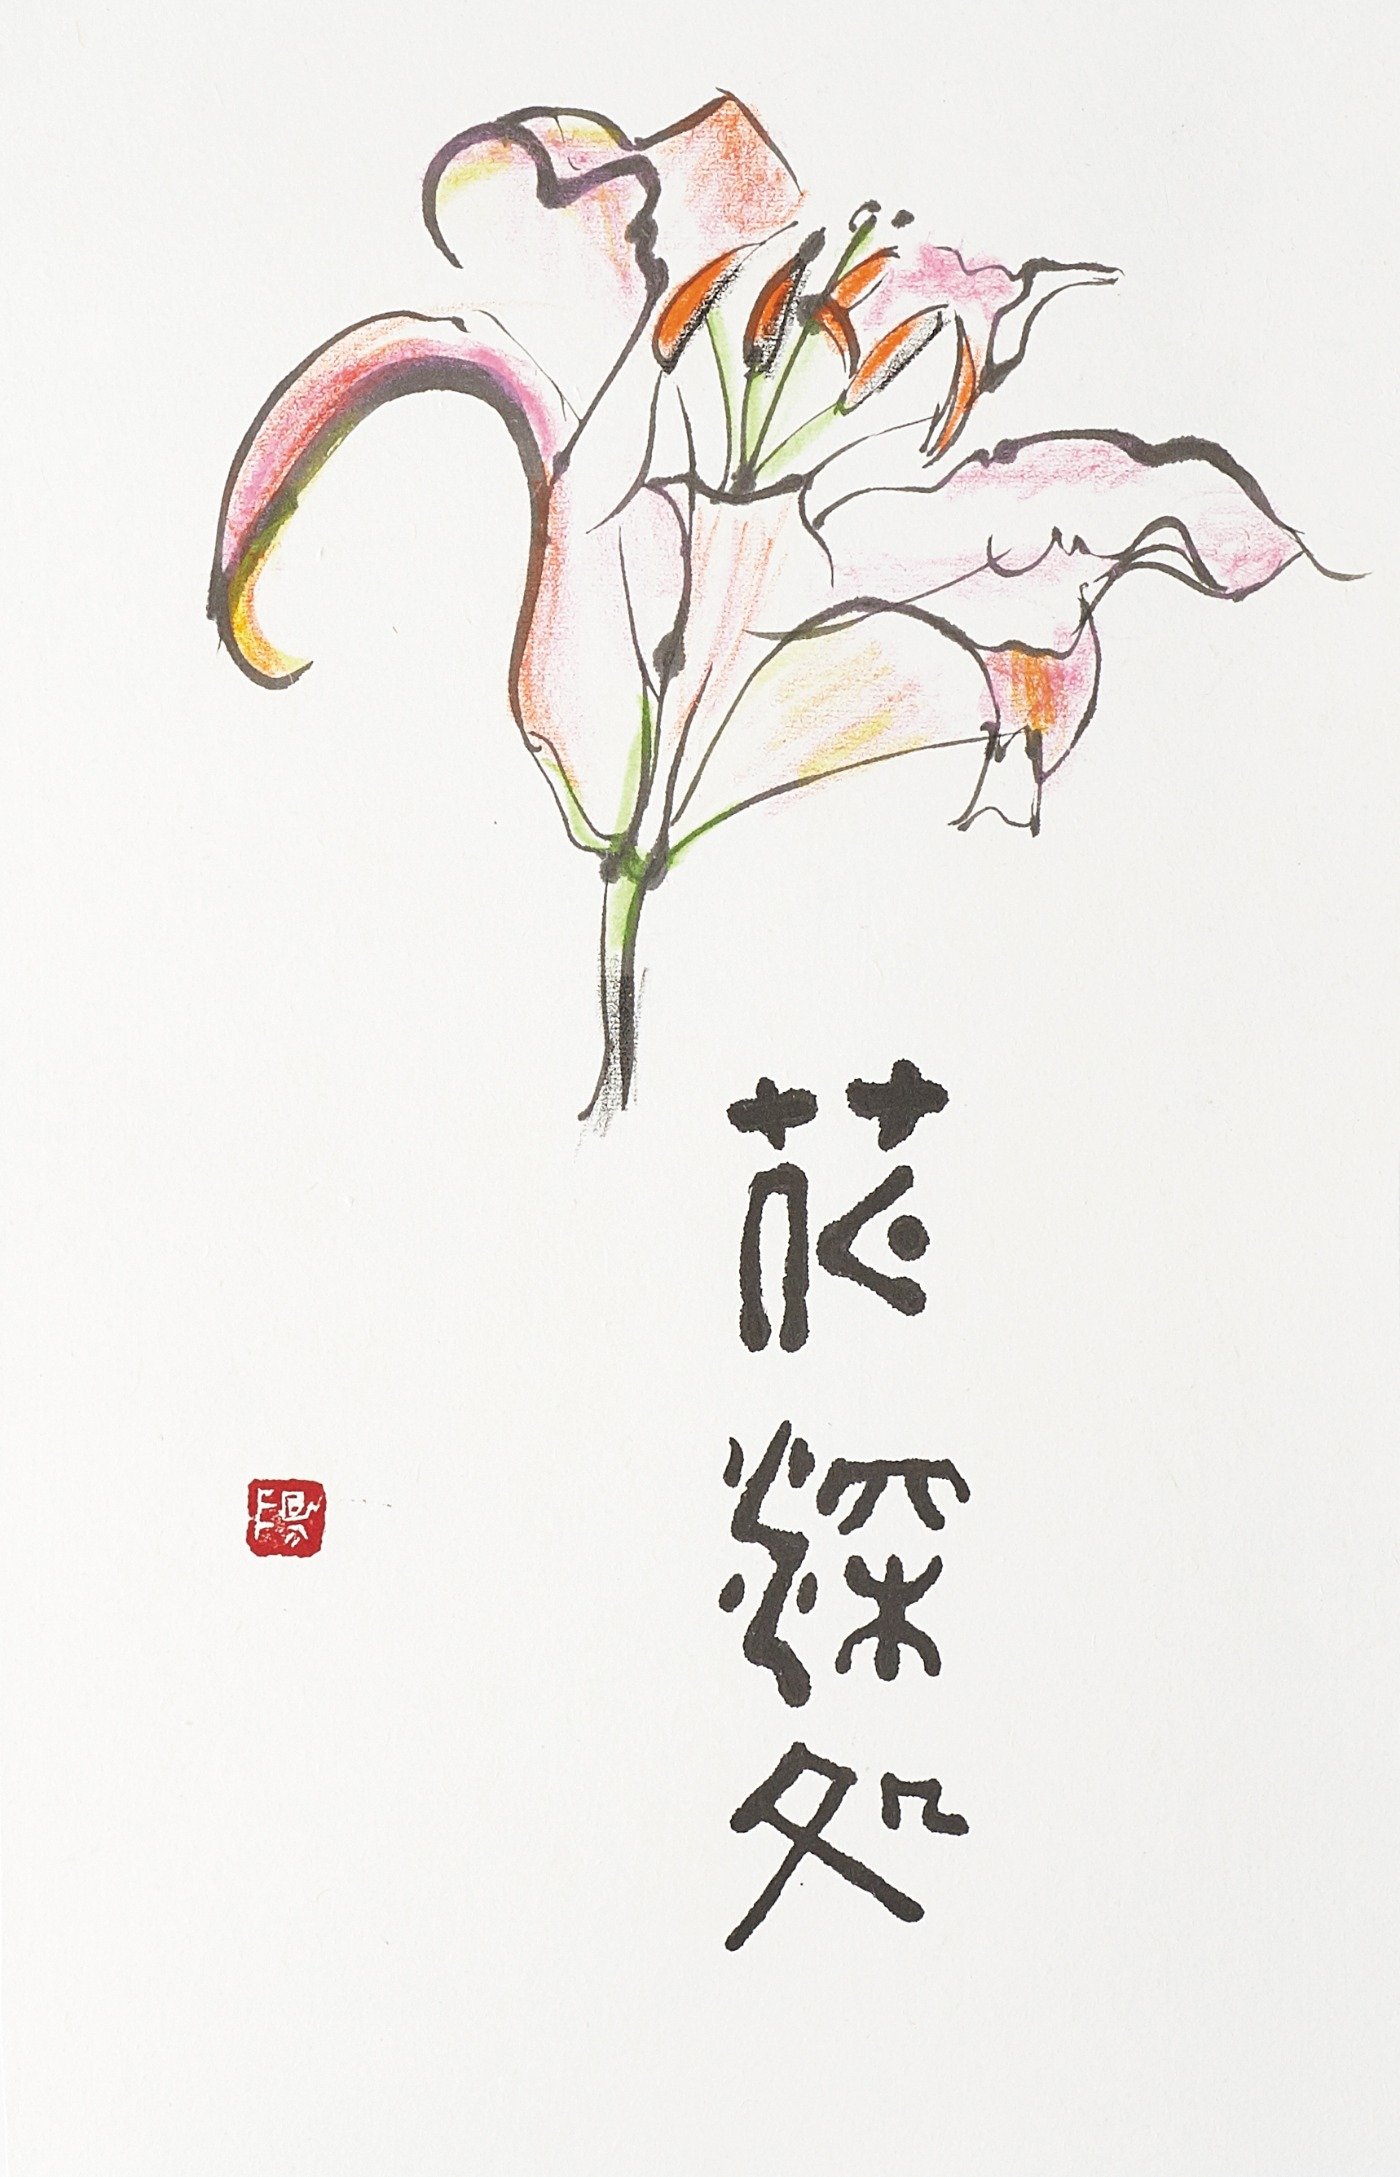 花深处
陽